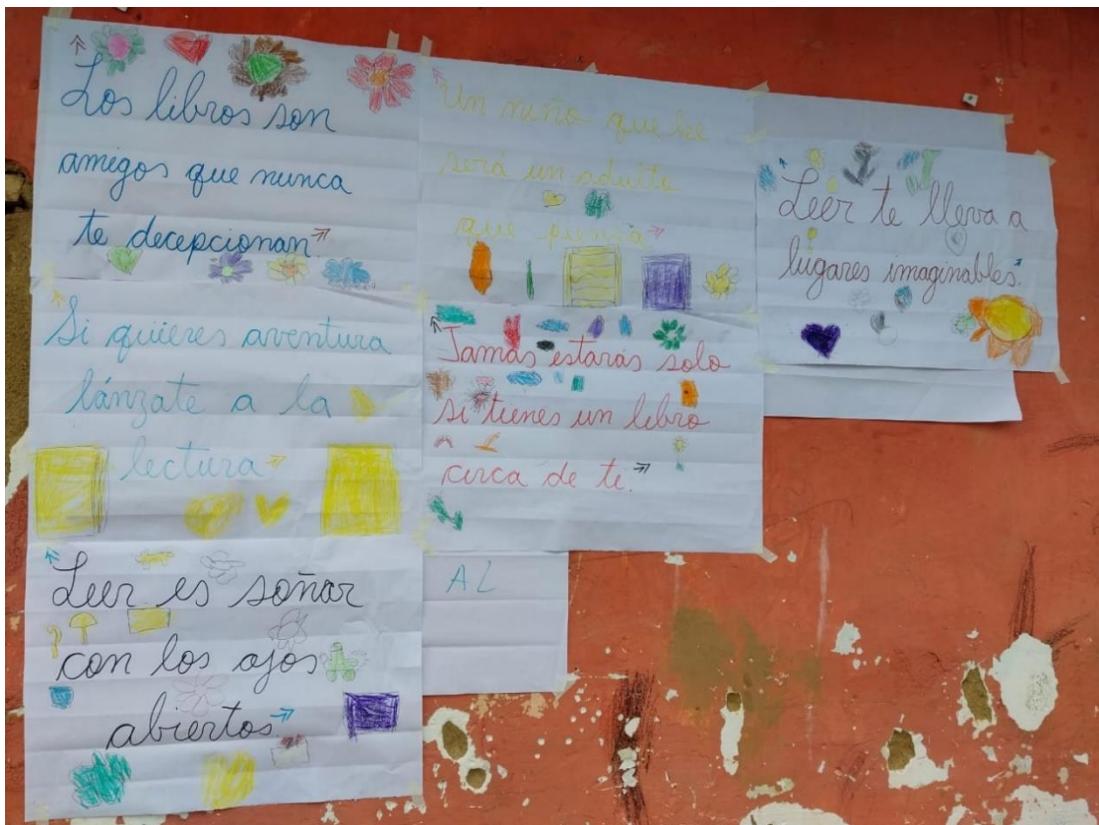 Los libros son
amigos que nunca
te decepcionan.
Si quieres aventura
lánzate a la
lectura
Leer es soñar
con los ojos
abiertos
Un niño que lee
será un adulto
que piensa
Jamás estarás solo
si tienes un libro
cerca de te.
AL
Leer te lleva a
lugares imaginables.